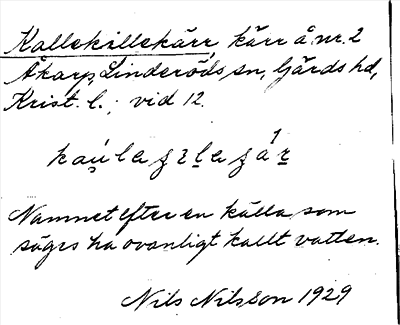 Kallekillekärr, kärr å. nr. 2
Åkarp, Linderöds sn, Gärds hd,
Krist. l.; vid 12.
Namnet efter en källa, som
säges ha ovanligt kallt vatten.
Nils Nilsson 1929